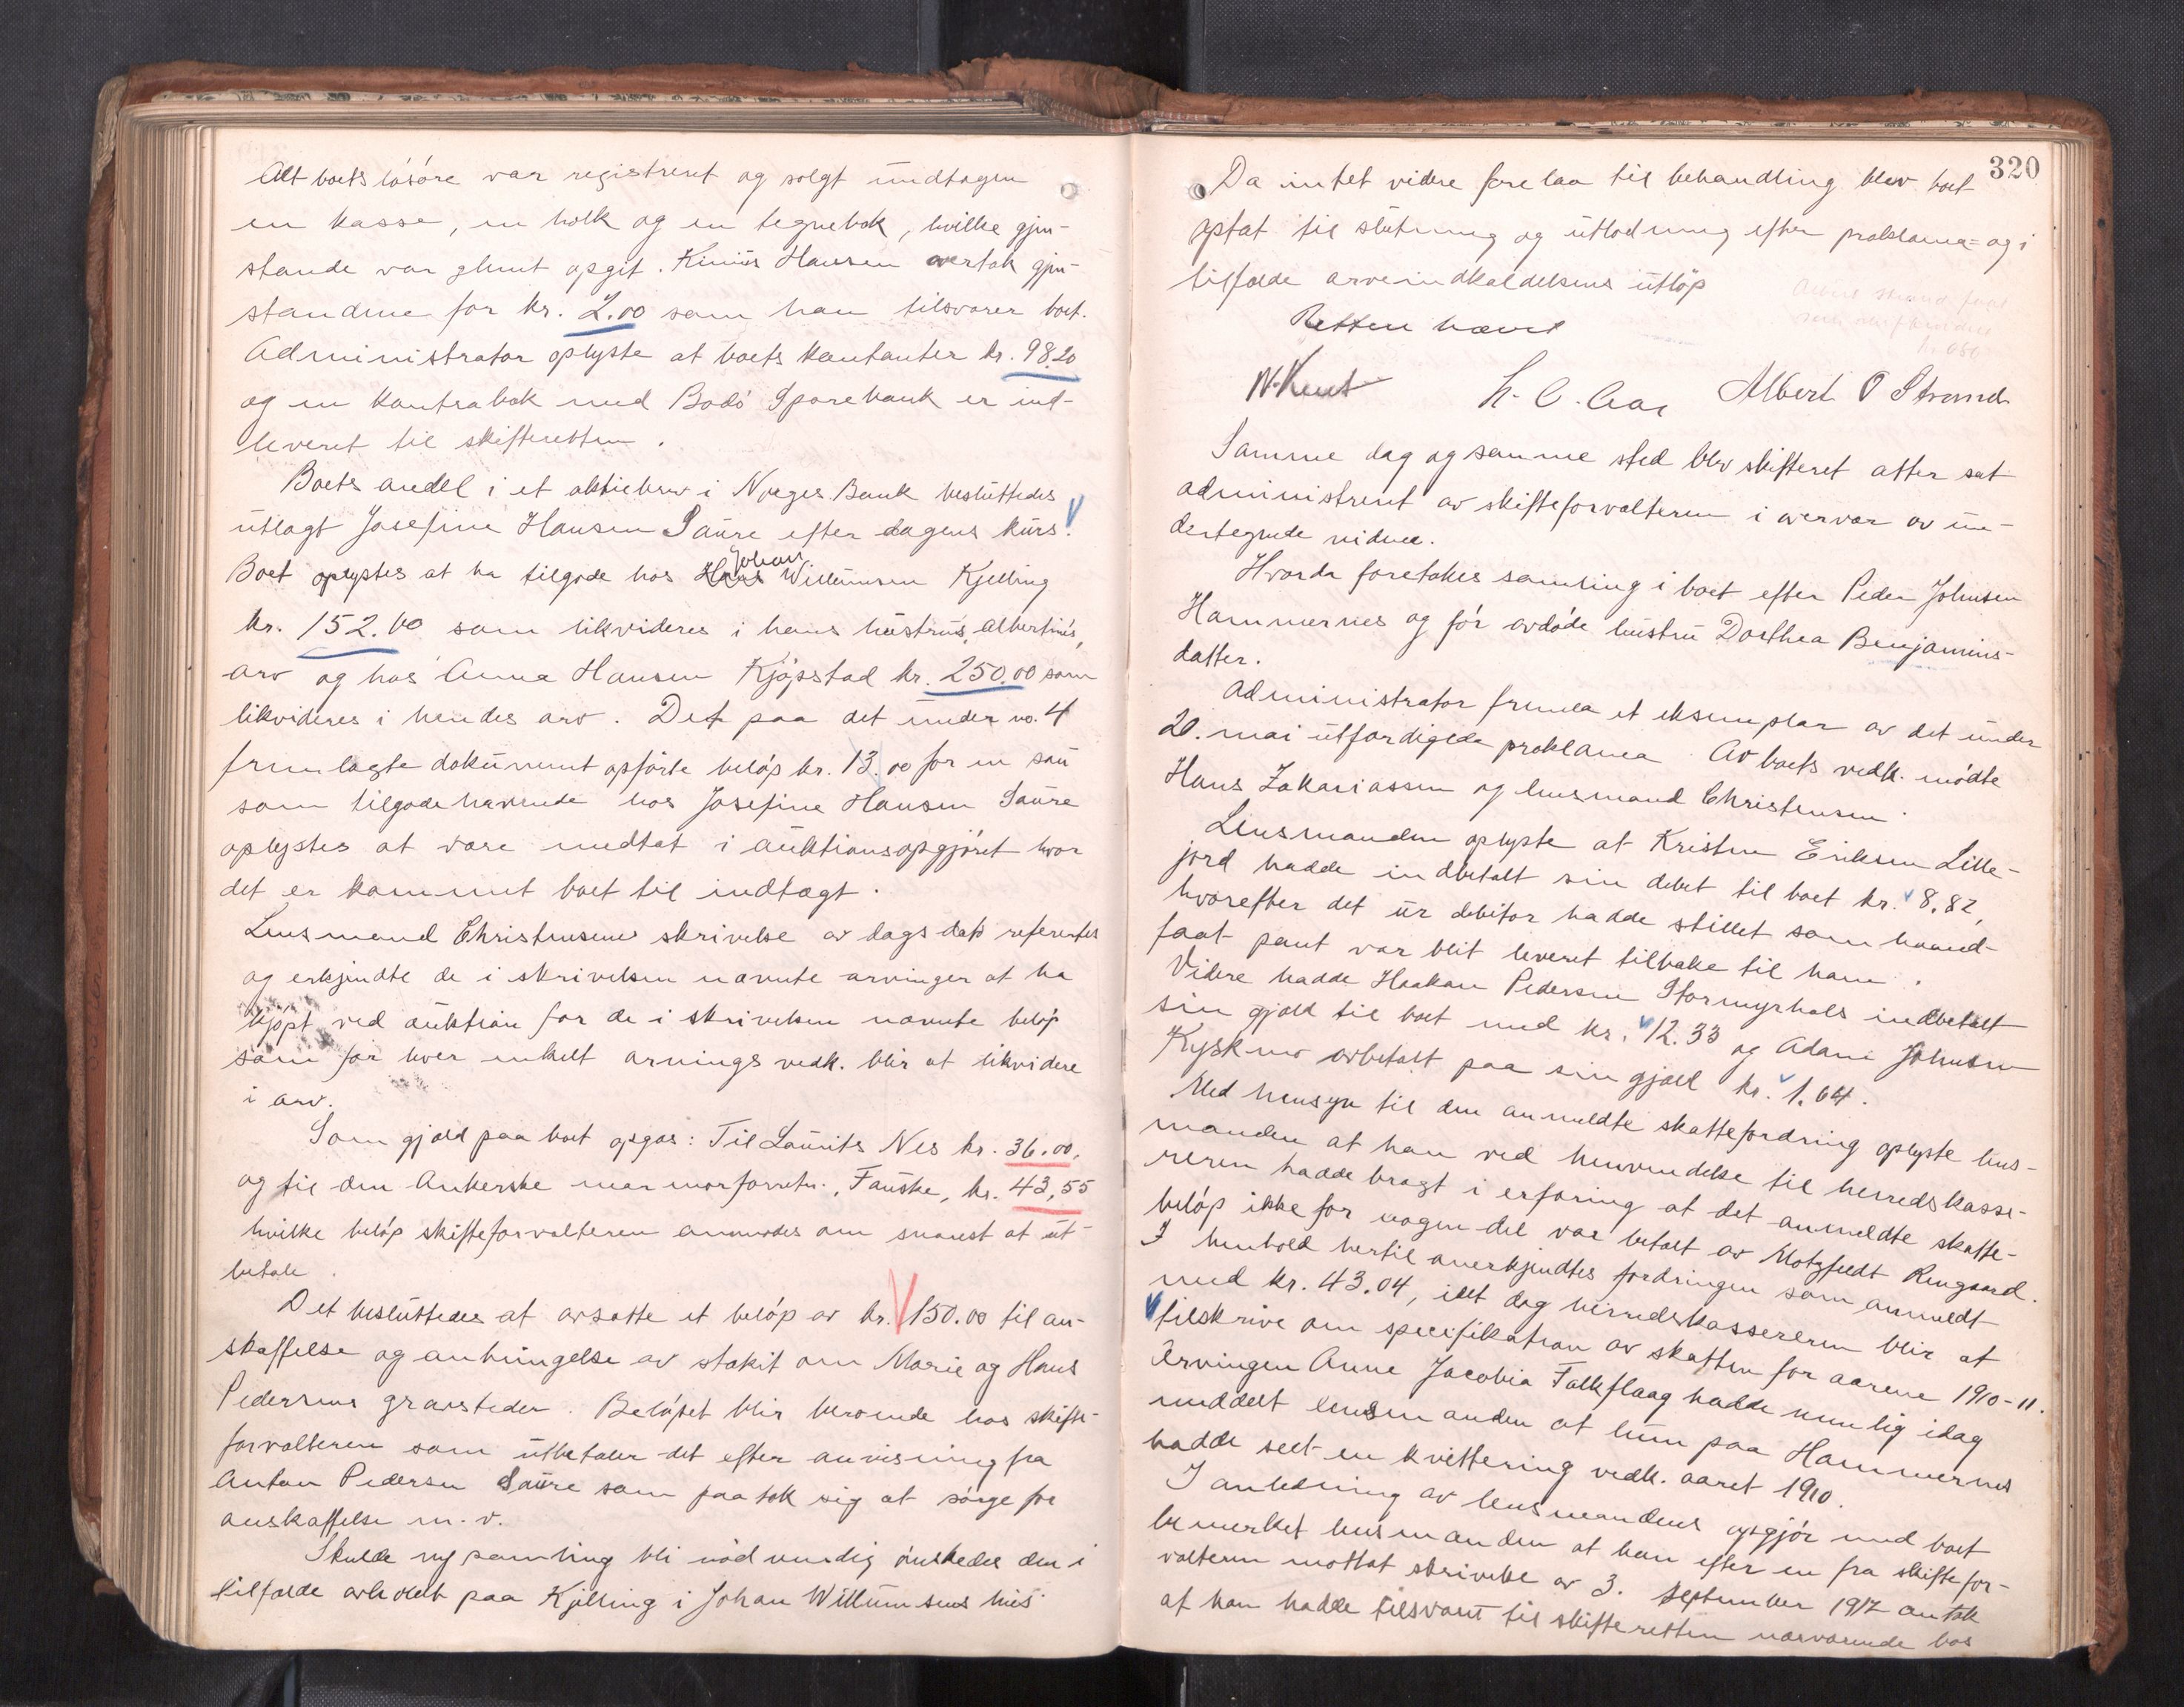 Alt boets løsøre var registrert og solgt undtagen
en kasse, en holk og en tegnebok, hvilke gjen-
stande var glemt opgit. Kinius Hansen overtok gjen-
standene for kr. 2.00 som han tilsvarer boet.
Administrator oplyste at boets kontanter kr. 98.20
og en kontrabok med Bodø Sparebank er ind-
leveret til skifteretten.
Boets andel i et aktiebrev i Norges Bank besluttedes
utlagt Josefine Hansen Saure efter dagens kurs.
Boet oplystes at ha tilgode hos Johan Willumsen Kjelling
kr. 152.00 som likvideres i hans hustrus, Albertines,
arv og hos Anna Hansen Kjøpstad kr. 250.00 som
likvideres i hendes arv. Det paa det under no. 4
fremlagte dokument opførte beløp kr. 13.00 for en sau
som tilgodehavende hos Josefine Hansen Saure
oplystes at være medtat i auktionsopgjøret hvor
det er kommet boet til indtægt.
Lensmand Christensens skrivelse av dags dato refereertes
og erkjendte de i skrivelsen nævnte arvinger at ha
kjøpt ved auktion for de i skrivelsen nævnte beløp
som for hver enkelt arvings vedk. blir at likvidere
i arv.
Som gjæld paa boet opgas: Til Laurits Nes kr. 36.00,
og til den Ankerske marmorforretn., Fauske, kr. 43,55
hvilke beløp skifteforvalteren anmodes om snarest at ut-
betale.
Det besluttedes at avsætte et beløp av kr. 150.00 til an-
skaffelse og anbringelse av stakit om Marie og Hans
Pedersens gravsteder. Beløpet blir beroende hos skifte-
forvalteren som utbetaler det efter anvisning fra
Anton Pedersen Saure som paatok sig at sørge for
anskaffelse m.v.
Skulde ny samling bli nødvendig ønskedes den i
tilfælde avholdt paa Kjelling i Johan Willumsens hus.
320
Da intet videre forelaa til behandling blev boet
optat til slutning og utlodning efter proklama= og i
tilfælde arveindkaldelsens utløp
Retten hævet
N. Kent H. C. Aas Albert O Strand
Samme dag og samme sted blev skifteret atter sat
administrert av skifteforvalteren i overvær av un-
dertegnede vidner.
Hvorda foretokes samling i boet efter Peder Johnsen
Hammernes og før avdøde hustru Dorthea Benjamins-
datter.
Administrator fremla et eksemplar av det under
20. mai utfærdigede proklama Av boets vedk. mødte
Hans Zakariassen og lensmand Christensen.
Lensmanden oplyste at Kristen Eriksen Lille-
jord hadde indbetalt sin debet til boet kr. 8.82,
hvorefter det ur debitor hadde stillet som haand-
faat pant var blit leveret tilbake til ham.
Videre hadde Haakon Pedersen Stormyrhals indbetalt
sin gjæld til boet med kr. 12.33 og Adam Johnsen
Kyskmo avbetalt paa sin gjæld kr. 1.64.
Med hensyn til den anmeldte skattefordring oplyste lens-
manden at han ved henvendelse til herredskasse-
reren hadde bragt i erfaring at det anmeldte skatte-
beløp ikke for nogen del var betalt av Motzfeldt Rengaard.
I henhold hertil anerkjendtes fordringen som anmeldt
med kr. 43.04, idet dog herredskassereren blir at
tilskrive om specifikation av skatten for aarene 1910-11.
Arvingen Anne Jacobia Falkflaag hadde nemlig idag
meddelt lensmanden at hun paa Hammernes
hadde seet en kvittering vedk. aaret 1910.
I anledning av lensmandens opgjør med boet
bemerket lensmanden at han efter en fra skiftefor-
valteren mottat skrivelse av 3. september 1917 antok
at han hadde tilsvaret til skifteretten nærværende bos